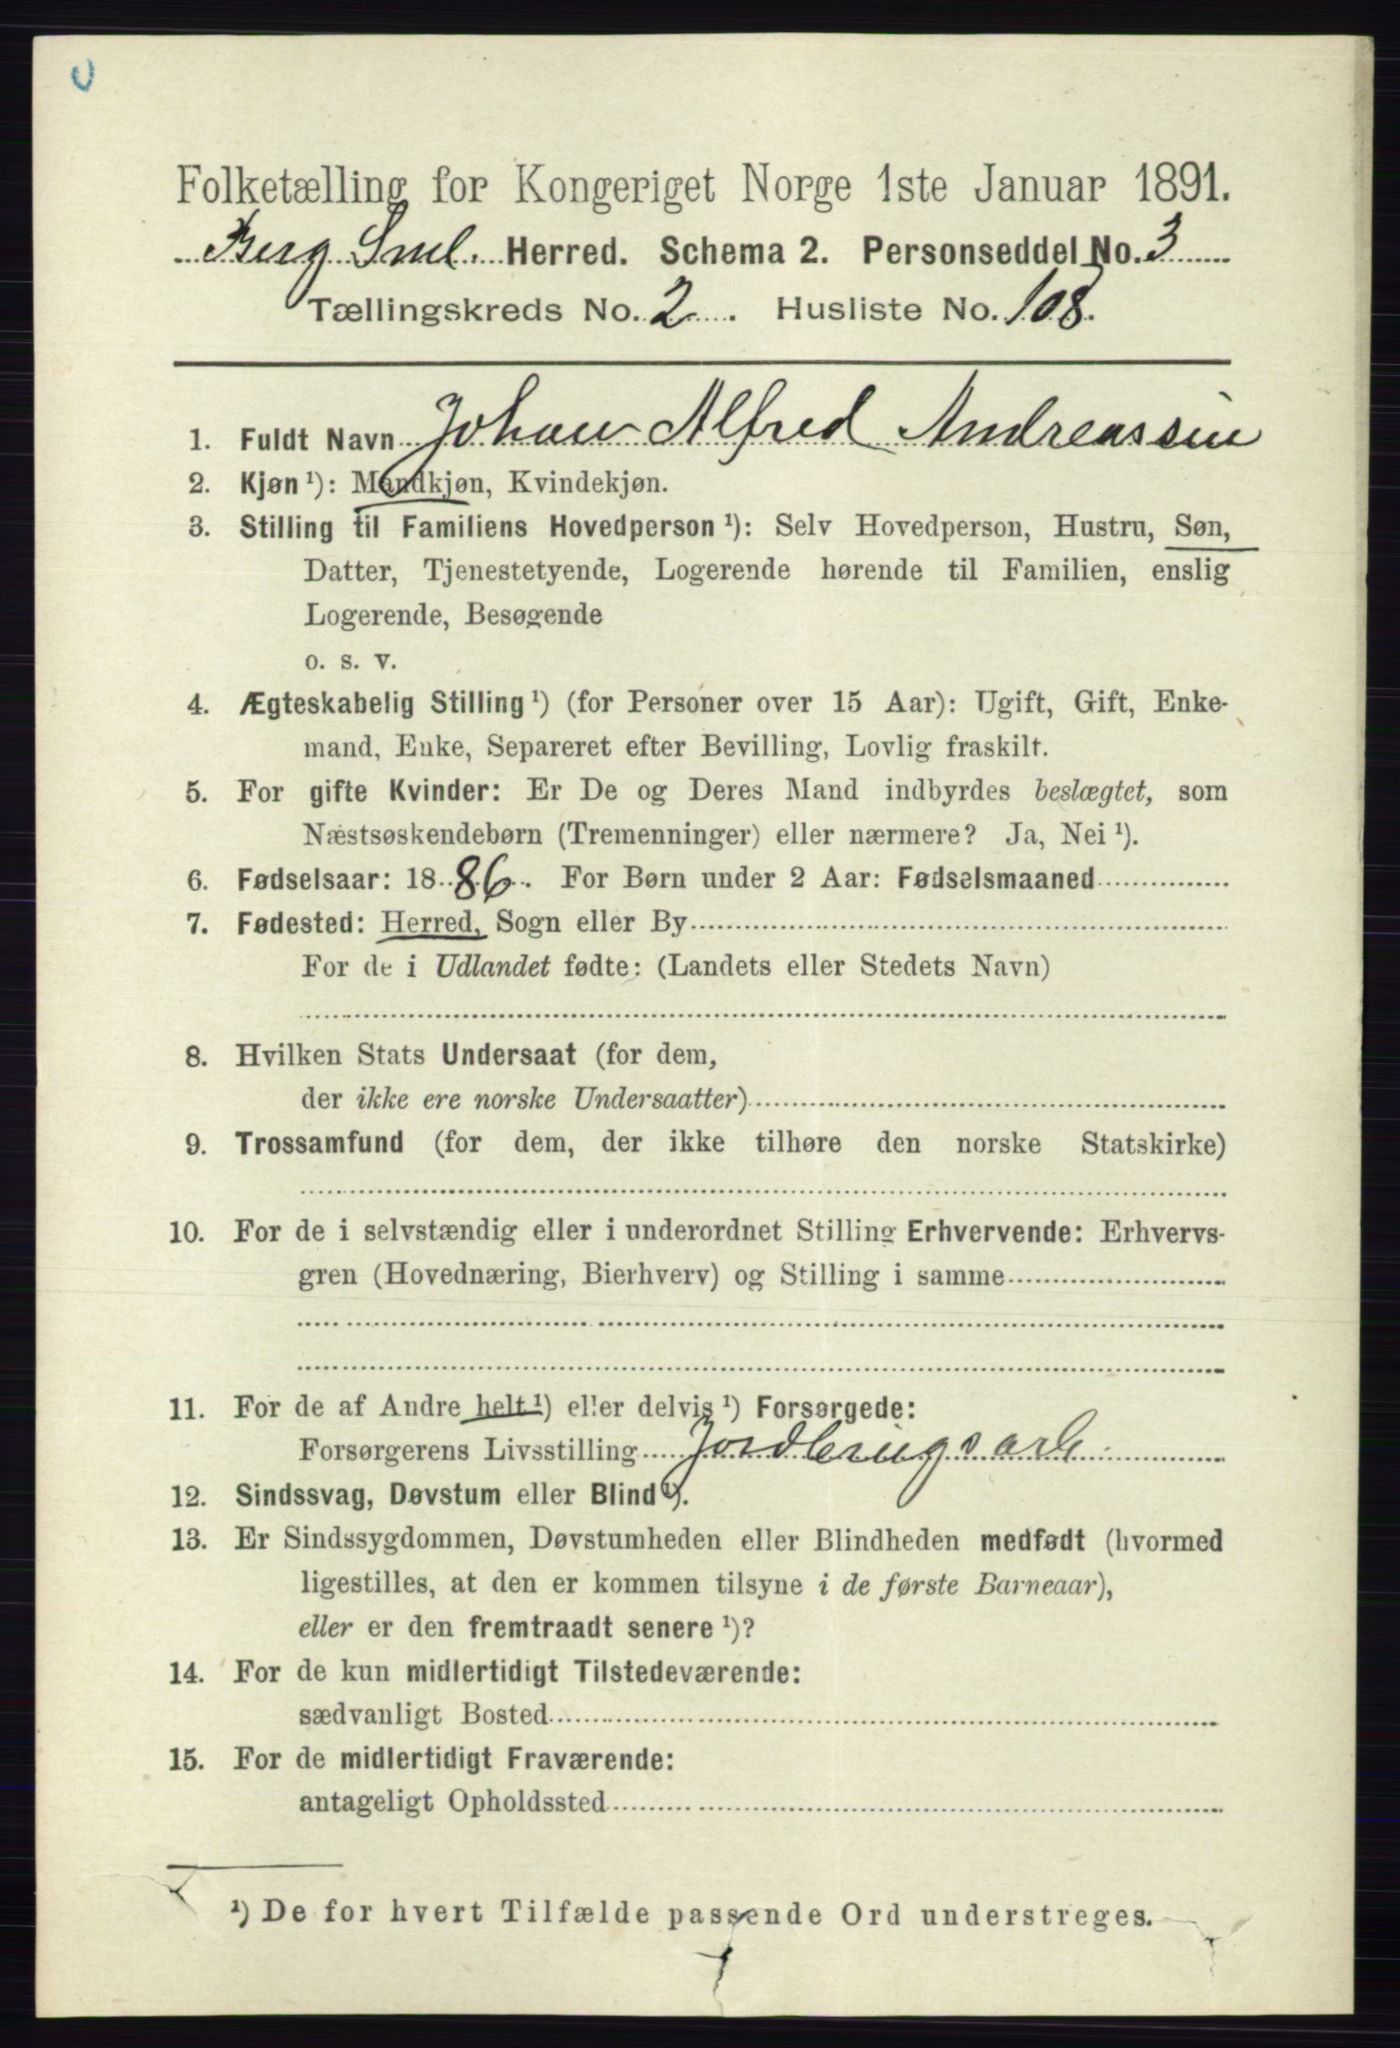 Folketælling for Kongeriget Norge 1ste Januar 1891.
Berg Sml. Herred. Schema 2. Personseddel No. 3
Tællingskreds No. 2. Husliste No. 108.
1. Fuldt Navn Johan Alfred Andreassen
2. Kjøn ¹): Mandkjøn, Kvindekjøn.
3. Stilling til Familiens Hovedperson ¹): Selv Hovedperson, Hustru, Søn,
Datter, Tjenestetyende, Logerende hørende til Familien, enslig
Logerende, Besøgende
o. s. v.
4. Ægteskabelig Stilling ¹) (for Personer over 15 Aar): Ugift, Gift, Enke-
mand, Enke, Separeret efter Bevilling, Lovlig fraskilt.
5. For gifte Kvinder: Er De og Deres Mand indbyrdes beslægtet, som
Næstsøskendebørn (Tremenninger) eller nærmere? Ja, Nei ¹).
6. Fødselsaar: 1886. For Børn under 2 Aar: Fødselsmaaned
7. Fødested: Herred, Sogn eller By
For de i Udlandet fødte: (Landets eller Stedets Navn)
8. Hvilken Stats Undersaat (for dem,
der ikke ere norske Undersaatter)
9. Trossamfund (for dem, der ikke tilhøre den norske Statskirke)
10. For de i selvstændig eller i underordnet Stilling Erhvervende: Erhvervs-
gren (Hovednæring, Bierhverv) og Stilling i samme
11. For de af Andre helt ¹) eller delvis ¹) Forsørgede:
Forsørgerens Livsstilling Jordbrugsarb.
12. Sindssvag, Døvstum eller Blind ¹).
13. Er Sindssygdommen, Døvstumheden eller Blindheden medfødt (hvormed
ligestilles, at den er kommen tilsyne i de første Barneaar),
eller er den fremtraadt senere ¹)?
14. For de kun midlertidigt Tilstedeværende:
sædvanligt Bosted
15. For de midlertidigt Fraværende:
antageligt Opholdssted
¹) De for hvert Tilfælde passende Ord understreges.